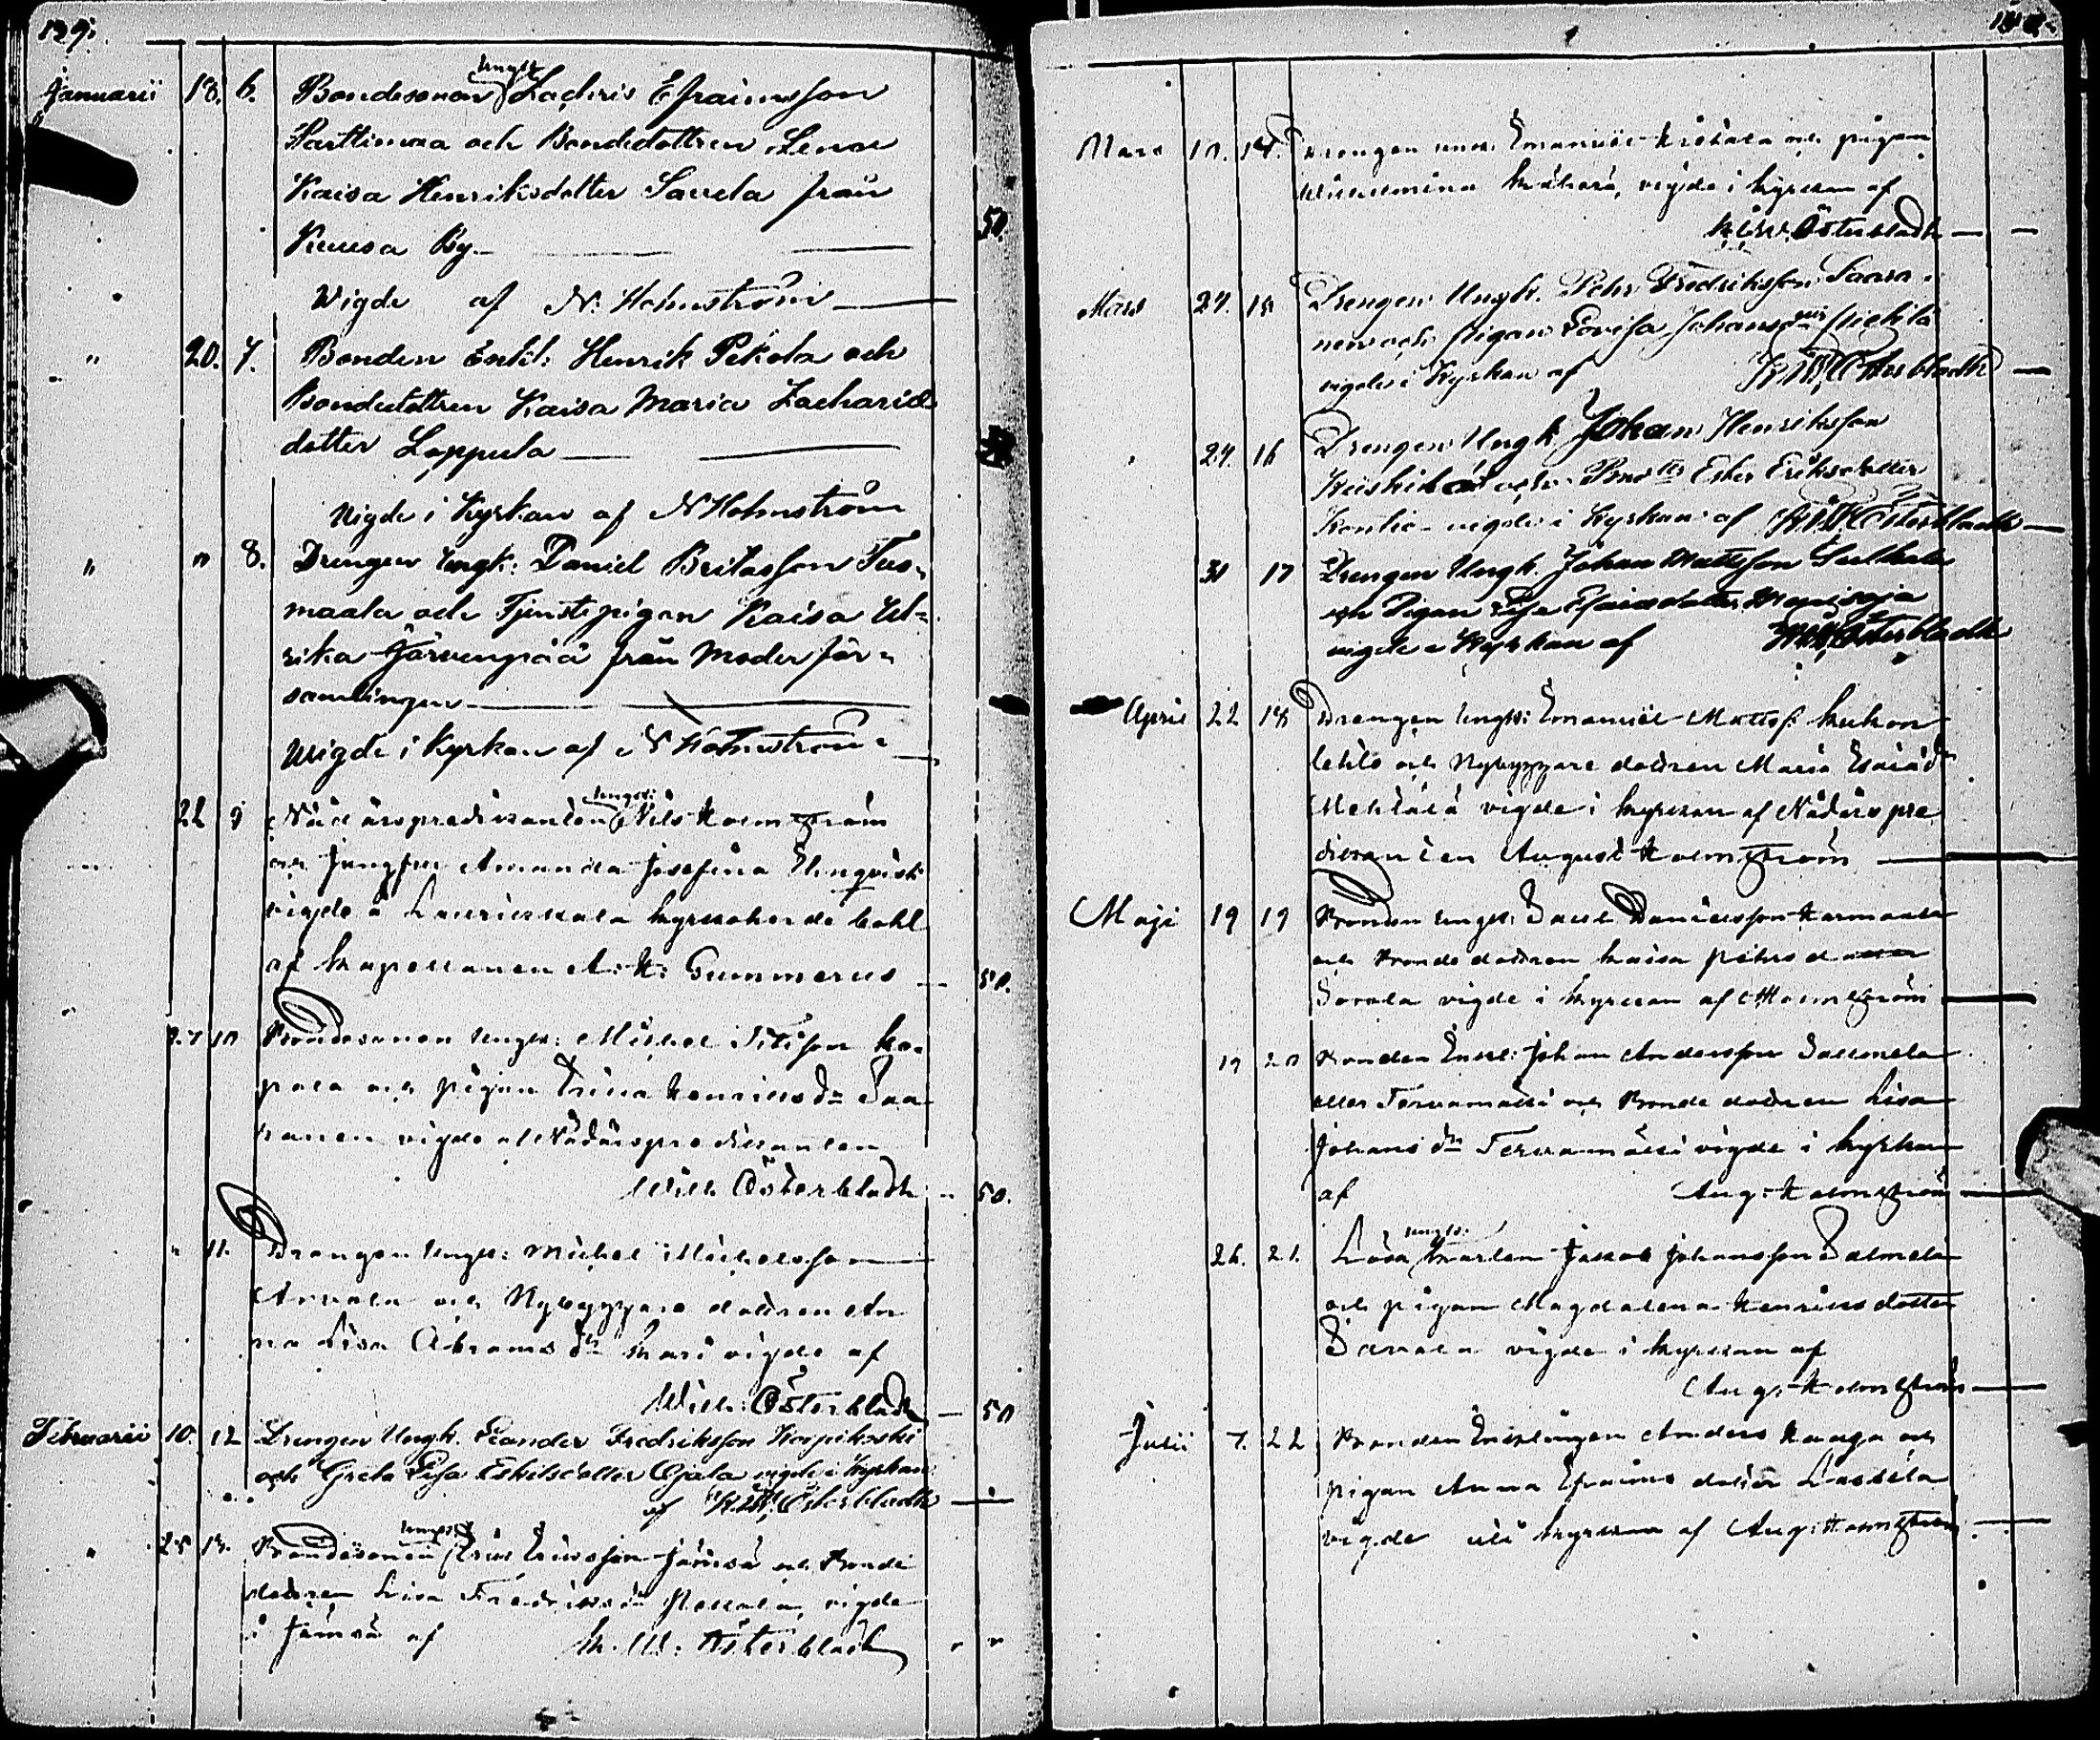 129.
Januarii 18. 6. Bondesonen ungk Zachris Efraimsson
Parttimaa och Bondedottren Lena
Kaisa Henriksdotter Savela från
Kuusa By — 50.
Wigde af N. Holmström —
" 20. 7. Bonden Enkl: Henrik Pekola och
Bondedottren Kaisa Maria Zacharia
dotter Loppula —
Vigde i Kyrkan af N Holmström
" " 8. Drengen ungk: Daniel
maala och Tjenstepigan Kaisa Ul-
rika Järvenpää från Moderför-
samlingen —
Wigde i Kyrkan af N Holmström —
22 9 Nådårspredikanten ungk: Nils Holmström
och Jungfru Amanda Josefina Elmqvist
vigde å kyrkoherde bohl
af Kapellanen A. H: Gummerus — 50.
27 10 Bondesonen ungk: Michel
och pigan Henriksdr Saa-
vigde af Nådårspredikanten
Wilh Österbladh " 50.
" 11. Drengen ungk: Michel Michelsson
och Nybyggare dottren An
na Lisa Abramsdr Kari vigde af
Wilh: Österbladh — 50
Februarii 10. 12 Drengen Ungk. Leander Fredriksson Korpikoski
och Greta Lisa Eskilsdotter Ojala vigde i Kyrkan
af K. W. Österbladh —
" 25 13. Bondesonen ungk: Eric Ericsson Jämsä och Bonde
dottren Lisa vigde
i Jämsä af K. W: Österbladh " "
Mars 10. 14. Drengen Emanuel och pigan
Wilhelmina vigde i kyrkan af
K. W. Österbladh — —
Mars 24. 15 Drengen Ungk. Pehr Fredriksson Saara-
nen och Pigan Lovisa Johansdr Pietilä
vigde i Kyrkan af K W Österbladh —
" 24. 16 Drengen Ungk Johan Henriksson
och Ester Eriksdotter
Kontio vigde i Kyrkan af K W Österbladh —
31 17 Drengen Ungk. Johan Mattsson
och Pigan Lisa
vigde i Kyrkan af K W Österbladh
April 22 18 Drengen ungk: Emanuel Mattss. Kukon
lehto och Nybyggare dottren Maria Esaiædr
Mehtälä vigde i kyrkan af Nådårs pre
dikanten August Holmström —
Maji 19 19 Bonden ungk: Danielsson
och Bonde dottren Kaisa Pehrsdotter
vigde i kyrkan af A Holmström —
19 20 Bonden Enkl: Johan Andersson Salmela
eller Tervamäki och Bonde dottren Lisa
Johansdr Tervamäki vigde i kyrkan
af Aug. Holmström —
26. 21. Lösa ungk: karlen Jakob Johansson Salmela
och pigan Magdalena Henriksdotter
vigde i kyrkan af
Aug. Holmström —
Julii 7. 22 Bonden Enklingen Anders Kauga och
pigan Anna Efraims dotter Lassila
vigde uti kyrkan af Aug: Holmström —